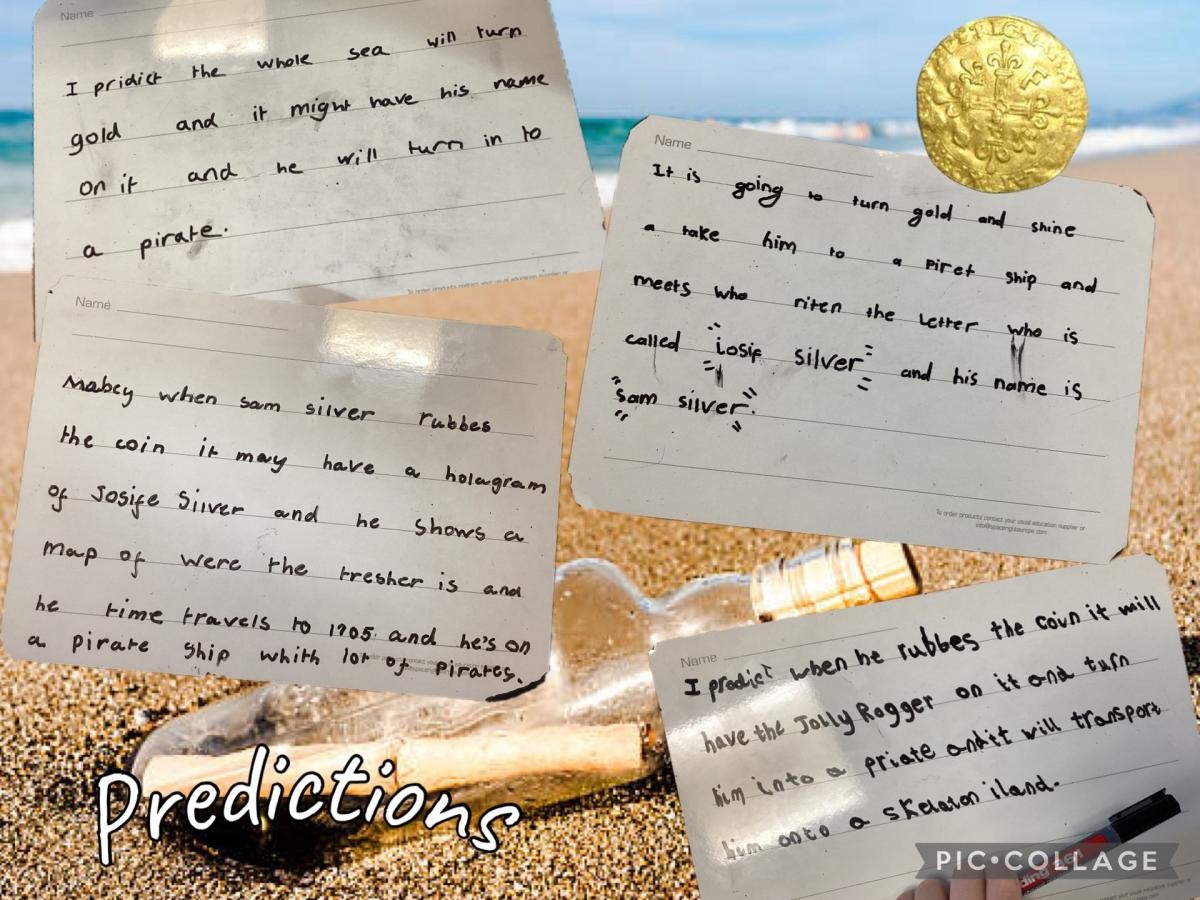 Name
I pridict the whole sea will turn
gold and it might have his name
on it and he will turn in to
a pirate.
Name
It is going to turn gold and shine
a take him to a piret ship and
meets who riten the letter who is
called iosif silver and his name is
sam silver.
To order products contact your usual education supplier or
info@spacerighteurope.com
Name
Mabey when sam silver rubbes
the coin it may have a holagram
of Josife Silver and he shows a
map of were the tresher is and
he time travels to 1705 and he's on
a pirate ship whith lot of pirates.
Name
I predict when he rubbes the coin it will
have the Jolly Rogger on it and turn
him into a priate and it will transport
him onto a skelaton iland.
Predictions
PIC•COLLAGE